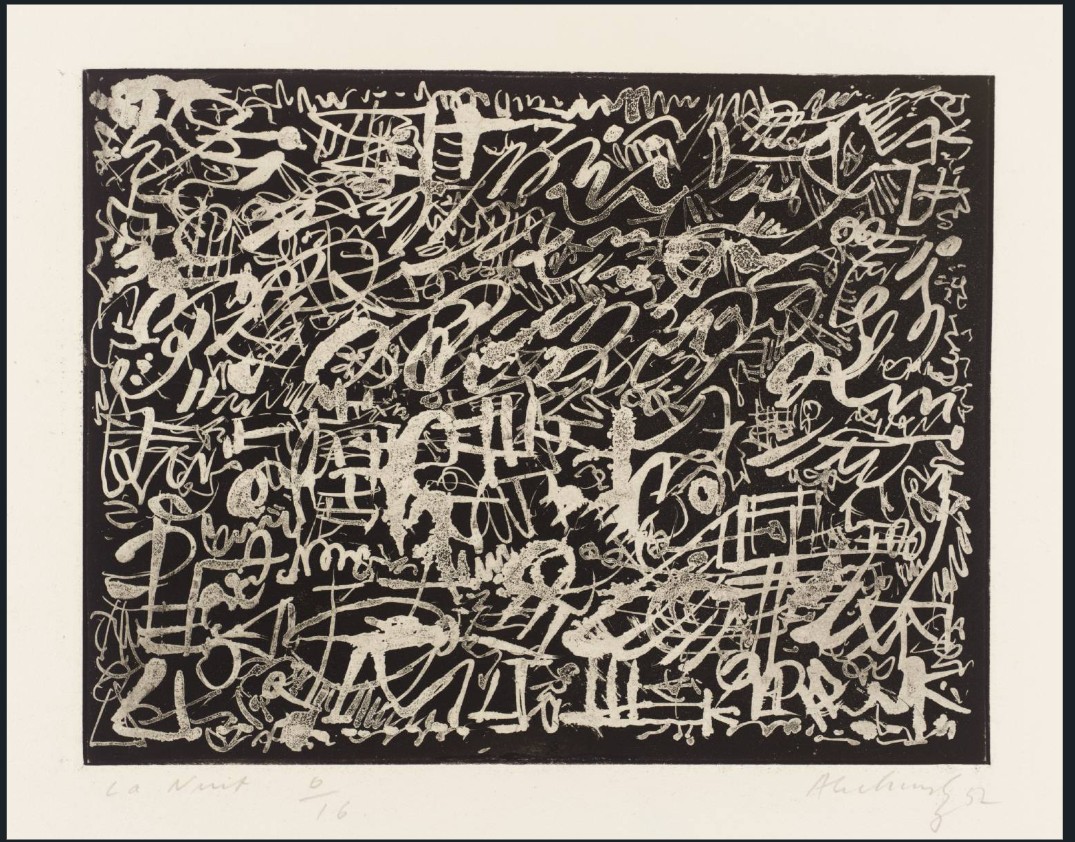 La Nuit 6/16
Alechinsky 52